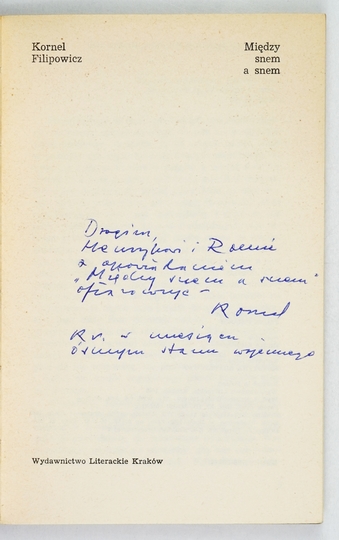 Kornel
Filipowicz
Między
snem
a snem
Drogim,
Henrykowi i Roenie
z opowiadaniem
„Między snem a snem”
ofiarowuję –
Kornel
w miesiącu
ósmym stanu wojennego
Wydawnictwo Literackie Kraków